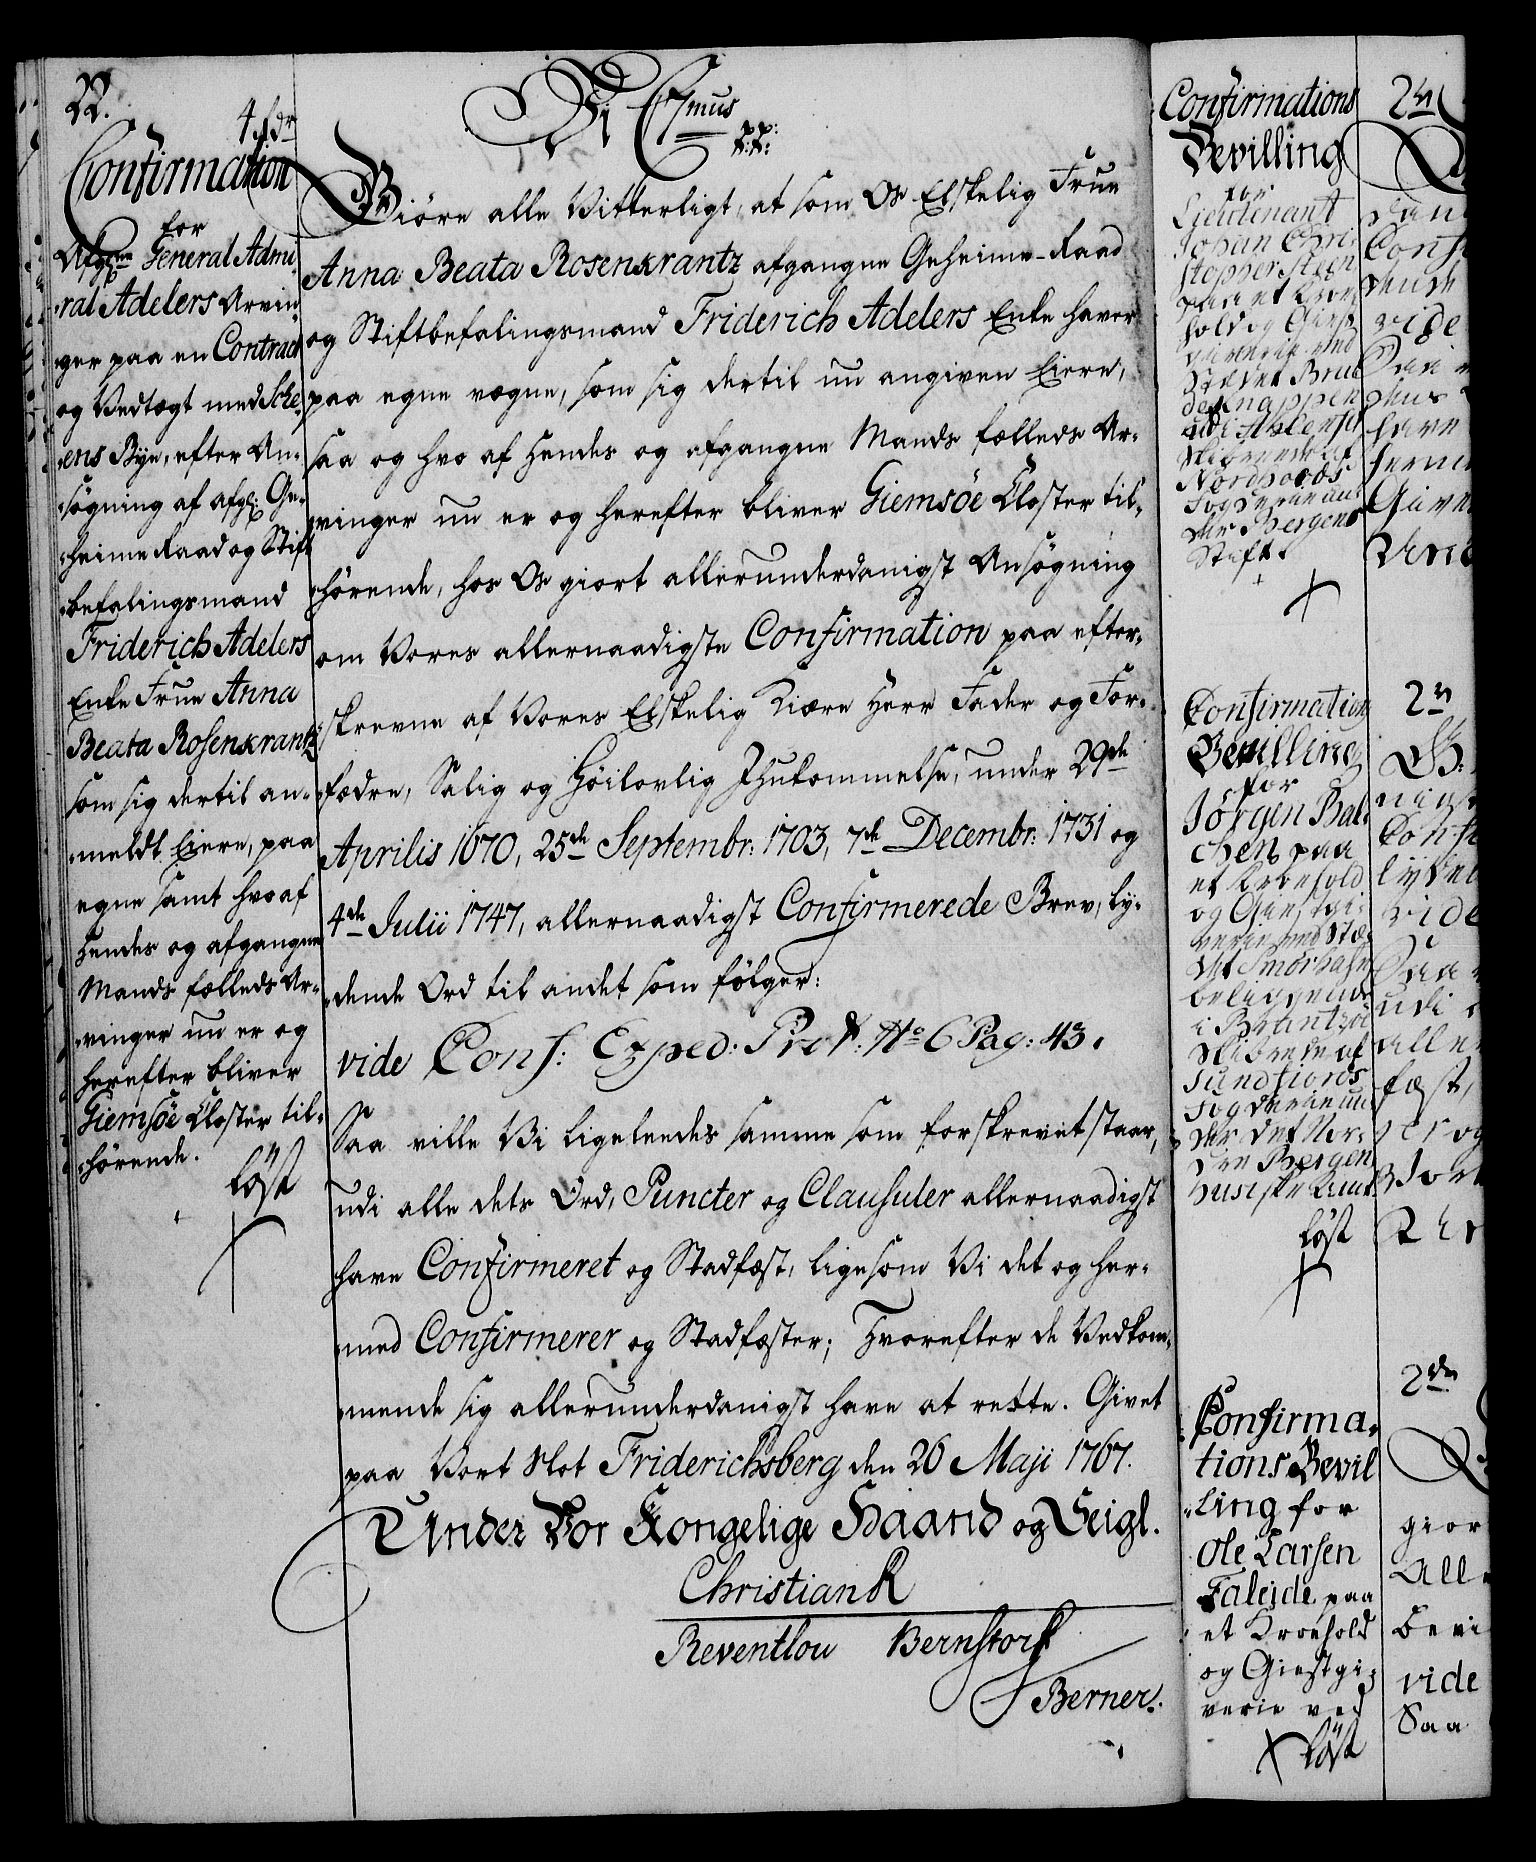 22.
4 rdr
Confirmation
for
Afgangne General Admi-
ral Adelers Arvin-
ger paa en Contract
og Vedtægt med Sche-
ens Bye, efter An-
søgning af afg: Ge-
heime Raad og Stift
befalingsmand
Friderich Adelers
Enke Frue Anna
Beata Rosenkrantz
som sig dertil an-
meldt Eiere, paa
egne samt hvo af
Hendes og afgangne
Mands fælleds Ar-
vinger nu er og
herefter bliver
Giemsöe Closter til-
hørende.
löst
Vi C 7mus
p: p:
Giöre alle Vitterligt, at som Os Elskelig Frue
Anna Beata Rosenkrantz afgangne Geheime-Raad
og Stiftbefalingsmand Friderich Adelers Enke haver
paa egne vegne, som sig dertil nu angiven Eiere,
saa og hvo af Hendes og afgangne Mands fælleds Ar-
vinger nu er og herefter bliver Giemsöe Closter til-
hörende, hos Os giort allerunderdanigst Ansögning
om Vores allernaadigste Confirmation paa efter-
skrevne af Vores Elskelig Kiære Herr Fader og For-
fædre, Salig og Höilovlig Ihukommelse, under 29de
Aprilis 1670, 25de Septembr: 1703, 7de Decembr: 1731 og
4de Julii 1747, allernaadigst Confirmerede Brev, ly-
dende Ord til andet som fölger:
vide Conf: Exped: Prot: No 6 Pag: 43.
Saa ville Vi ligeleedes samme som forskrevet staar,
udi alle dets Ord, Puncter og Clausuler allernaadigst
have Confirmeret og Stadfæst, ligesom Vi det og her-
med Confirmerer og Stadfæster; Hvorefter de Vedkom-
mende sig allerunderdanigst have at rette. Givet
paa Vort Slot Friderichsberg den 26 Maji 1767.
Under Vor Kongelige Haand og Seigl.
Christian R
Reventlou Bernstorff
Berner.
Confirmations
Bevilling
for
Lieutenant
Johan Chri-
stopher Steen
paa et Kroe-
hold og Giest-
giverie ved
Stædet Bru
Skibrede af
Nordhords
Fogderie un-
der Bergens
Stift.
Confirmations
Bevilling
for
Jörgen Bal-
chen paa
et Kroehold
og Giestgi-
verie ved Stæ-
det Smörhafn
beliggende
i
Skibrede af
Sundfiords
Fogderie un-
der det Nor-
dre Bergen
huusiske Amt
löst
Confirma-
tions Bevil
ling for
Ole Larsen
Faleide paa
et Kroehold
og Giestgi-
verie ved
löst
2dr
Conf
vide
have
Given
2dr
Conf
vide
udi
alle
fæst,
og
2dr
giör
All
bevi
vide
Saa